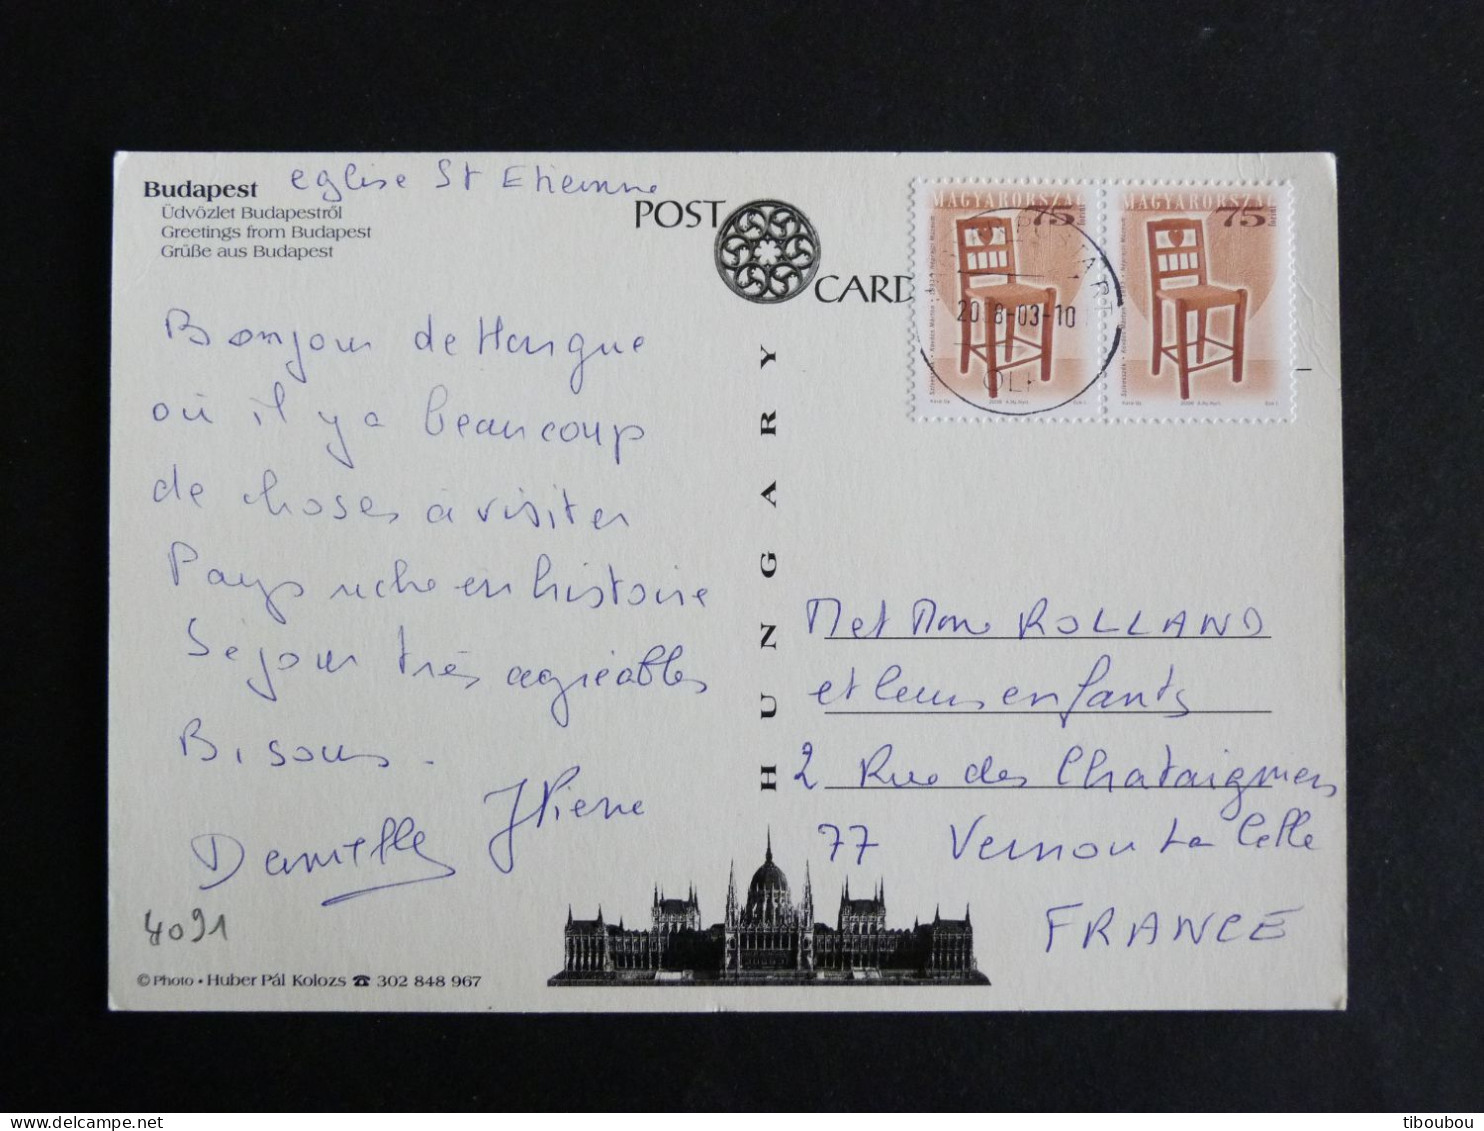 Budapest
eglise St Etienne
Üdvözlet Budapestről
Greetings from Budapest
Grüße aus Budapest
POST
CARD
MAGYARORSZÁG 75
MAGYARORSZÁG 75
-03-10
HUNGARY
Bonjour de Hongrie
où il y a beaucoup
de choses à visiter
Pays riche en histoire
Séjour très agréables
Bisous.
JPierre
Danielle
4091
© Photo • Huber Pál Kolozs ☎ 302 848 967
M et Mme ROLLAND
et leurs enfants
2 Rue des Chataigniers
77 Vernou La Celle
FRANCE
tiboubou